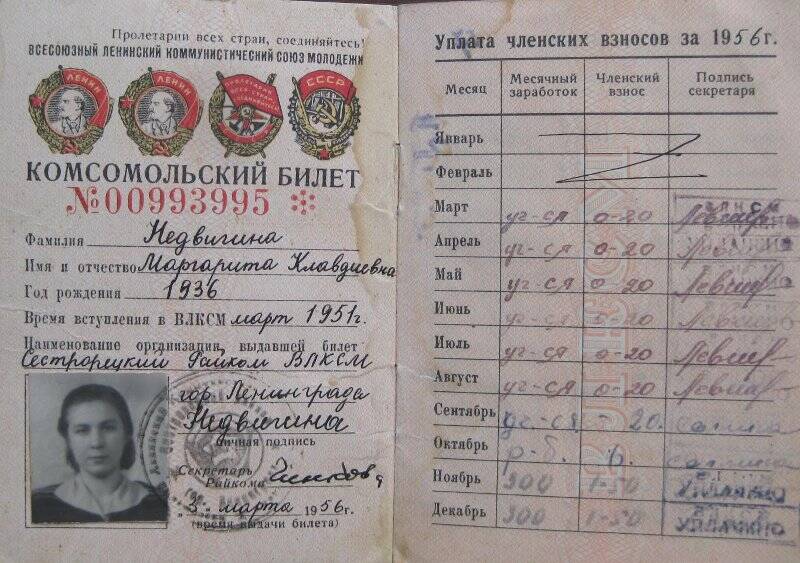 Пролетарии всех стран, соединяйтесь!
ВСЕСОЮЗНЫЙ ЛЕНИНСКИЙ КОММУНИСТИЧЕСКИЙ СОЮЗ МОЛОДЕЖИ
ЛЕНИН
ЛЕНИН
ПРОЛЕТАРИИ ВСЕХ СТРАН СОЕДИНЯЙТЕСЬ
СССР
КОМСОМОЛЬСКИЙ БИЛЕТ
№00993995
Фамилия Недвигина
Имя и отчество Маргарита Клавдиевна
Год рождения 1936
Время вступления в ВЛКСМ март 1951г.
Наименование организации, выдавшей билет
Сестрорецкий Райком ВЛКСМ
гор Ленинграда
Недвигина
личная подпись
Секретарь
Райкома
„3„ марта 1956 г.
(время выдачи билета)
Уплата членских взносов за 1956 г.
Месяц Месячный заработок Членский взнос Подпись секретаря
Январь
Февраль
Март уч-ся 0-20
Апрель уч-ся 0-20
Май уч-ся 0-20
Июнь уч-ся 0-20
Июль уч-ся 0-20
Август уч-ся 0-20
Сентябрь уч-ся 20
Октябрь
Ноябрь 300 1-50
УПЛАЧЕНО
Декабрь 300 1-50
УПЛАЧЕНО